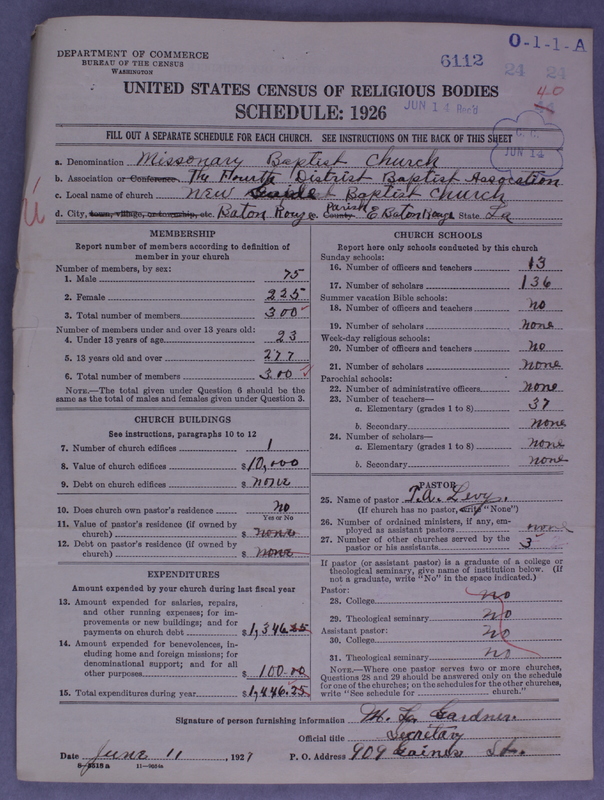 DEPARTMENT OF COMMERCE
BUREAU OF THE CENSUS
WASHINGTON
6112
O-1-1-A
24 24
40
UNITED STATES CENSUS OF RELIGIOUS BODIES
SCHEDULE: 1926
JUN 14
FILL OUT A SEPARATE SCHEDULE FOR EACH CHURCH. SEE INSTRUCTIONS ON THE BACK OF THIS SHEET
JUN 14
a. Denomination Missonary Baptist Church
b. Association or Conference. The Fourth District Baptist Assocation
c. Local name of church New Guide Baptist Church
d. City, town, village, or township, etc. Baton Rouge County. Parish E Baton Rouge State La
MEMBERSHIP
Report number of members according to definition of
member in your church
Number of members, by sex:
1. Male 75
2. Female 225
3. Total number of members 300
Number of members under and over 13 years old:
4. Under 13 years of age 23
5. 13 years old and over 277
6. Total number of members 300
NOTE.—The total given under Question 6 should be
same as the total of males and females given under Question 3.
CHURCH BUILDINGS
See instructions, paragraphs 10 to 12
7. Number of church edifices 1
8. Value of church edifices $10,000
9. Debt on church edifices $ none
10. Does church own pastor's residence no
Yes or No
11. Value of pastor's residence (if owned by
church) $ none
12. Debt on pastor's residence (if owned by
church) $ none
EXPENDITURES
Amount expended by church during last fiscal year
13. Amount expended for salaries, repairs,
and other running expenses; for im-
provements or new buildings; and for
payments on church debt $1,346.25
14. Amount expended for benevolences, in-
cluding home and foreign missions; for
denominational support; and for all
other purposes $ 100.00
15. Total expenditures during year $1,446.25
CHURCH SCHOOLS
Report here only schools conducted by this church
Sunday schools:
16. Number of officers and teachers 13
17. Number of scholars 136
Summer vacation Bible schools:
18. Number of officers and teachers no
19. Number of scholars none
Week-day religious schools:
20. Number of officers and teachers no
21. Number of scholars none
Parochial schools:
22. Number of administrative officers none
23. Number of teachers—
a. Elementary (grades 1 to 8) 37
b. Secondary none
24. Number of scholars—
a. Elementary (grades 1 to 8) none
b. Secondary none
PASTOR
25. Name of pastor T.A. Levy.
(If church has no pastor, write "None")
26. Number of ordained ministers, if any, em-
ployed as assistant pastors none
27. Number of other churches served by the
pastor or his assistants 3
If pastor (or assistant pastor) is a graduate of a college or
theological seminary, give name of institution below. (If
not a graduate, write "No" in the space indicated.)
Pastor:
28. College no
29. Theological seminary no
Assistant pastor:
30. College no
31. Theological seminary no
NOTE.—Where one pastor serves two or more churches,
Questions 28 and 29 should be answered only on the schedule
for one of the churches; on the schedules for the other churches,
write "See schedule for church."
Signature of person furnishing information M. L. Gardner.
Official title Secretary
Date June 11, 1927 P. O. Address 909 Gaines St.
8-5518a 11-9054a